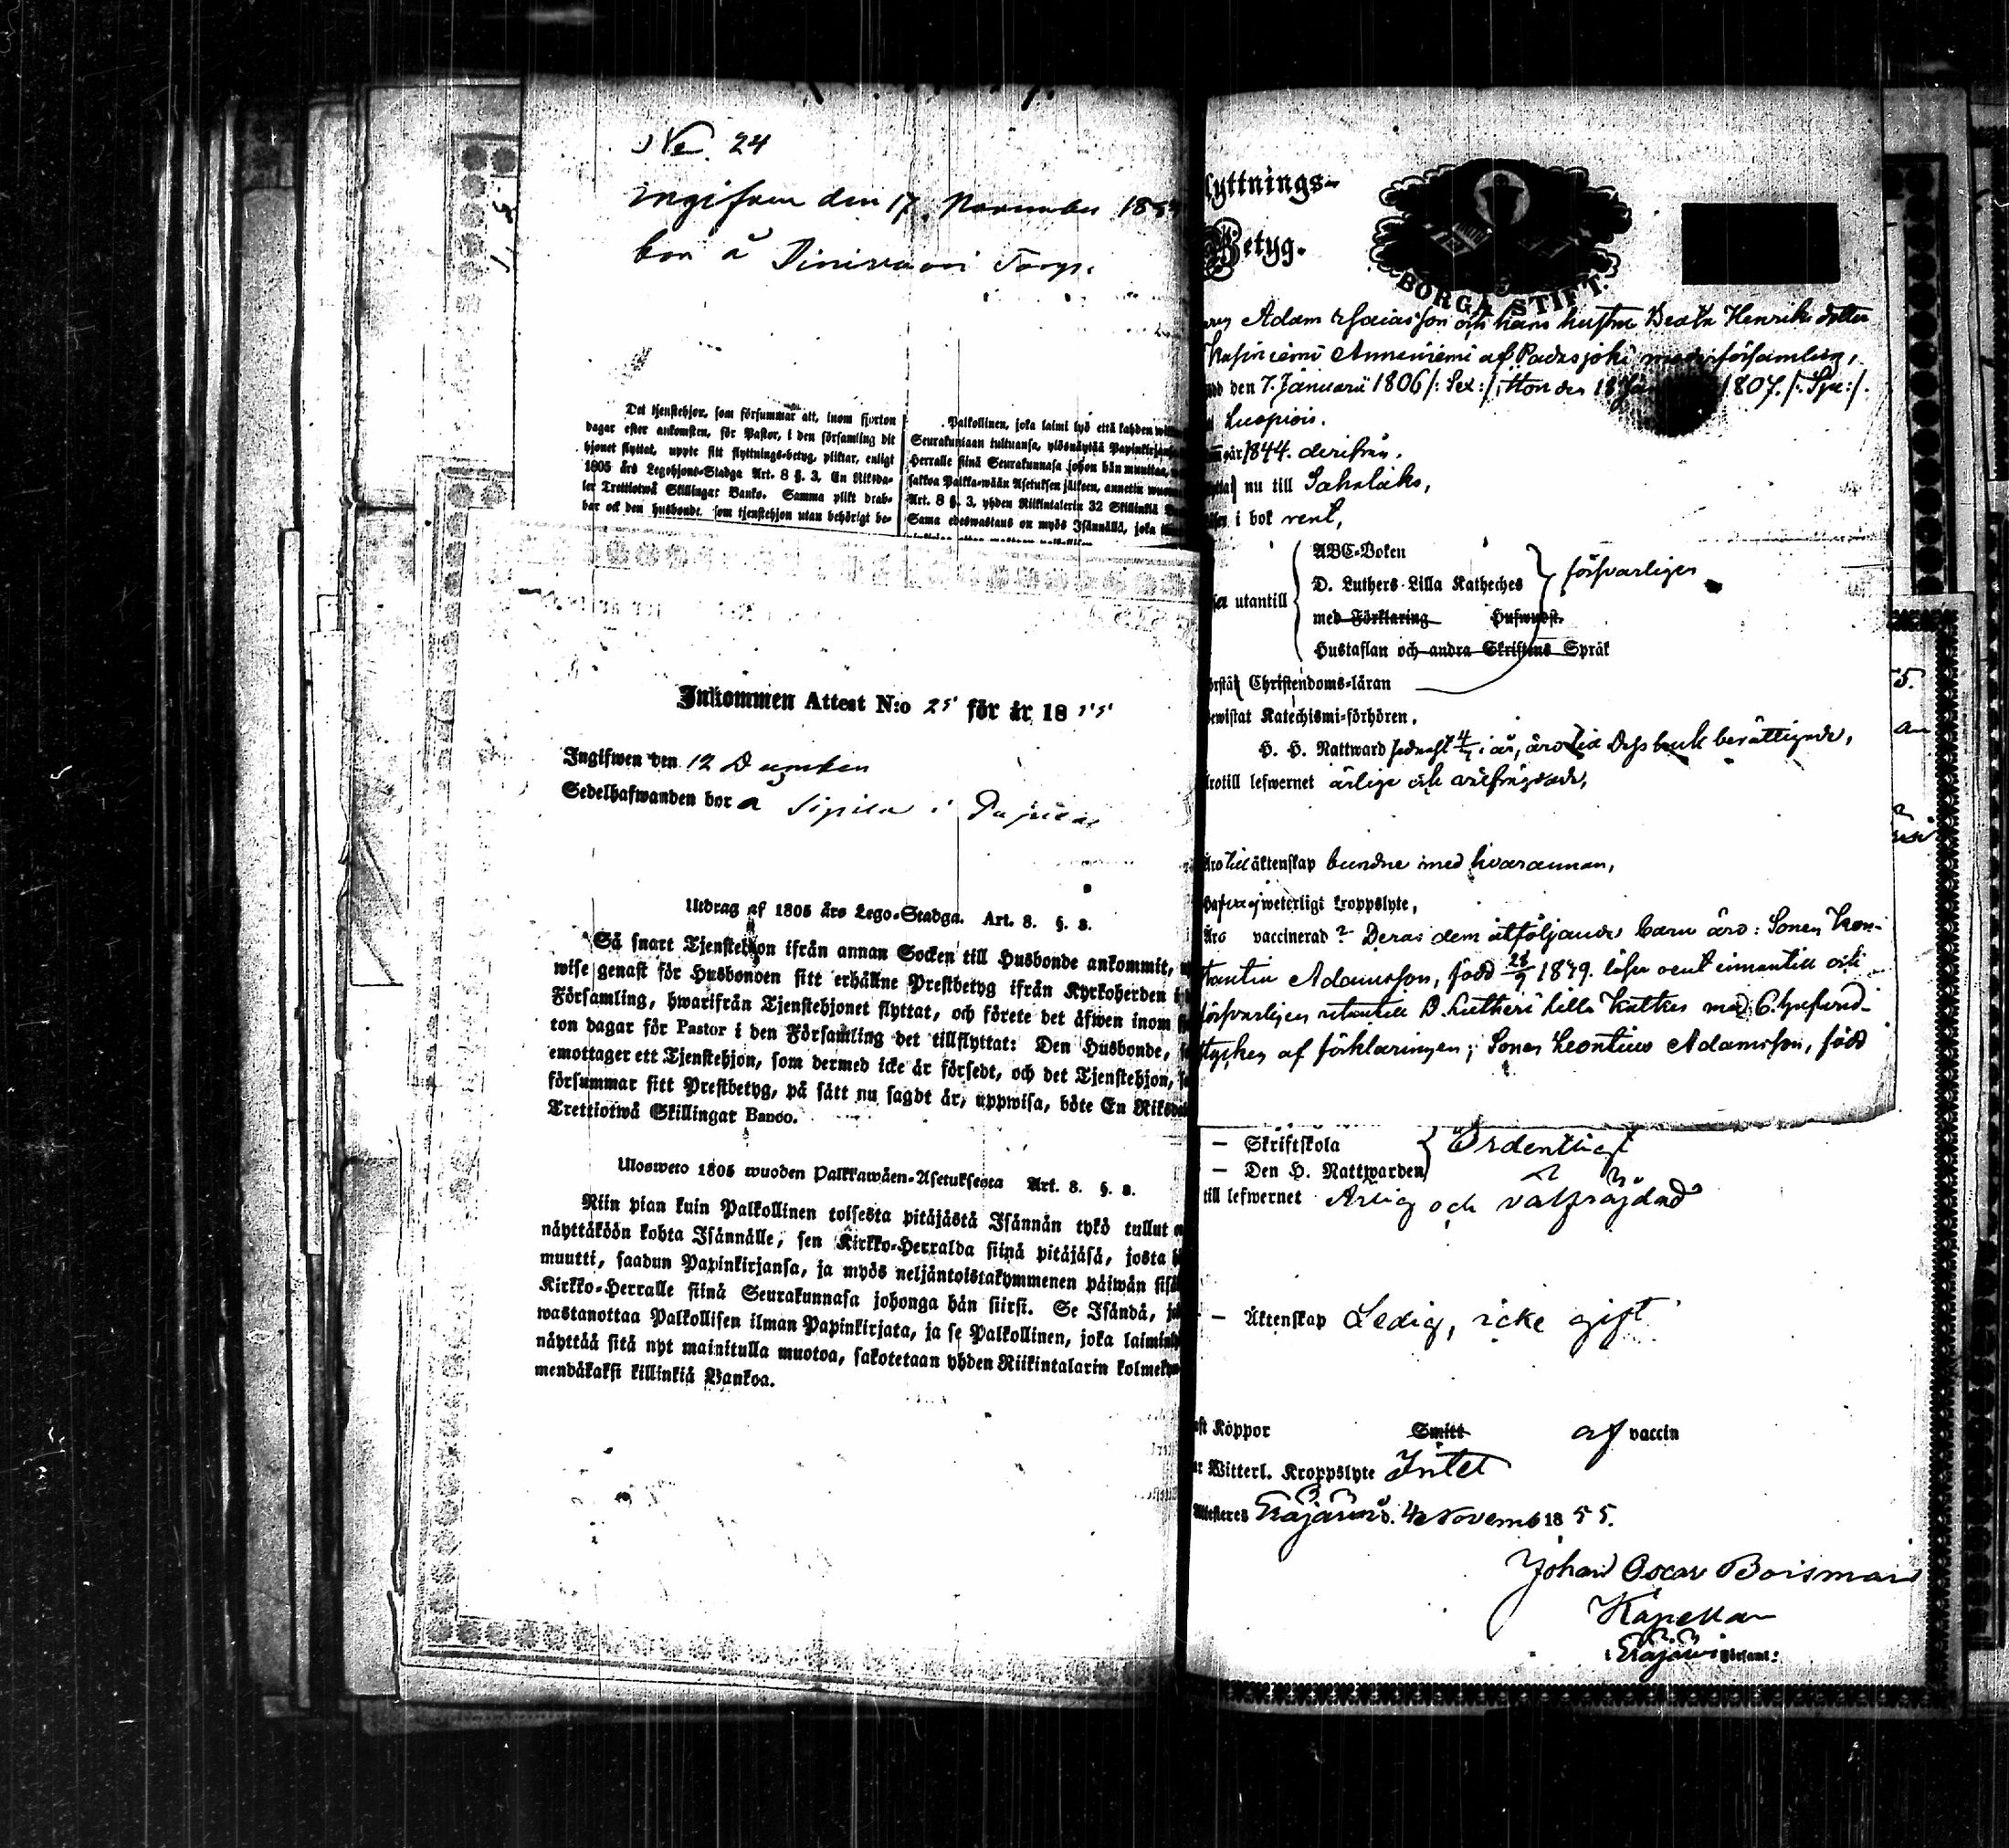 No. 24
Ingifven den 17 November 185
bor å Torp.
Det tjenstehjon, som försummar att, inom fjorton
dagar efter ankomsten, för Pastor, i den församling dit
hjonet flyttat, uppte sitt flyttnings-betyg, pliktar, enligt
1805 års Legohjons-Stadga Art. 8 §. 3, En Riksda-
ler Trettiotwå Skillingar Banko. Samma plikt drab-
bar ock den husbonde, som tjenstehjon utan behörigt be-
Palkollinen, joka laimi lyö että kahden
Seurakuntaan tultuansa, ylösnäyttää Papinkirjansa
Herralle siinä Seurakunnasa johon hän muuttaa,
sakkoa Palkka-wään Asetuksen jälkeen, annettu
Art. 8 §. 3, yhden Riikintalerin 32 Skillinkiä
Sama edeswastaus on myös Isännällä, joka
Inkommen Attest N:o 25 för år 1855
Ingifwen den 12 December
Sedelhafwanden bor å Sipilä i
Utdrag af 1805 års Lego-Stadga. Art. 8. §. 3.
Så snart Tjenstehjon ifrån annan Socken till Husbonde ankommit,
wise genast för Husbonden sitt erhållne Prestbetyg ifrån Kyrkoherden i
Församling, hwarifrån Tjenstehjonet flyttat, och förete det äfwen inom
ton dagar för Pastor i den Församling det tillflyttat: Den Husbonde,
emottager ett Tjenstehjon, som dermed icke är försedt, och det Tjenstehjon,
försummar sitt Prestbetyg, på sätt nu sagdt är, uppwisa, böte En Riksda
Trettiotwå Skillingar Banco.
Ulosweto 1805 wuoden Palkkawäen-Asetuksesta Art. 8. §. 3.
Niin pian kuin Palkollinen toisesta pitäjästä Isännän tykö tullut
näyttäköön kohta Isännälle, sen Kirkko-Herralda siinä pitäjäsä, josta
muutti, saadun Papinkirjansa, ja myös neljäntoistakymmenen päiwän
Kirkko-Herralle siinä Seurakunnasa johonga hän siirsi. Se Isändä,
wastanottaa Palkollisen ilman Papinkirjata, ja se Palkollinen, joka
näyttää sitä nyt mainitulla muotoa, sakotetaan yhden Riikintalarin
mendäkaksi killinkiä Bankoa.
lyttnings-
Betyg.
BORGÅ STIFT.
Adam Esaiasson och hans hustru Beata Henriksdotter
Anneniemi af Padasjoki moderförsamling,
den 7. Januarii 1806 /: Sex:/, Hon den 18 1807. /: Sju:/.
Luopiois.
år 1844. derifrån.
nu till Sahalaks,
i bok rent,
utantill
ABC-Boken
D. Luthers Lilla Katheches
med Förklaring Hufwudst.
Hustaflan och andra Skriftens Språk
försvarligen
Christendoms-läran
bewistat Katechismi-förhören.
H. H. Nattward sednast 4/7 i år, äro till Dess bruk berättigade,
till lefwernet ärlige och välfrägdade,
Äro till äktenskap bundne med hvarannan,
weterligt kroppslyte,
Äro vaccinerad? Deras dem åtföljande barn äro: Sonen Kon-
stantin Adamsson, född 28/9 1849. läser rent innantill och
försvarligen utantill D. Lutheri lilla Kathes med 6. hufvud-
stycken af förklaringen; Sonen Leontius Adamsson, född
– Skriftskola
– Den H. Nattwarden
Ordentligt
till lefwernet Ärlig och välfrägdad
– Äktenskap Ledig, icke gift
Koppor Smitt af vaccin
Witterl. Kroppslyte Intet
Attesteres Eräjärvi d. 4 Novemb 1855.
Johan Oscar Boisman
Kapellan
i Eräjärvi församl: